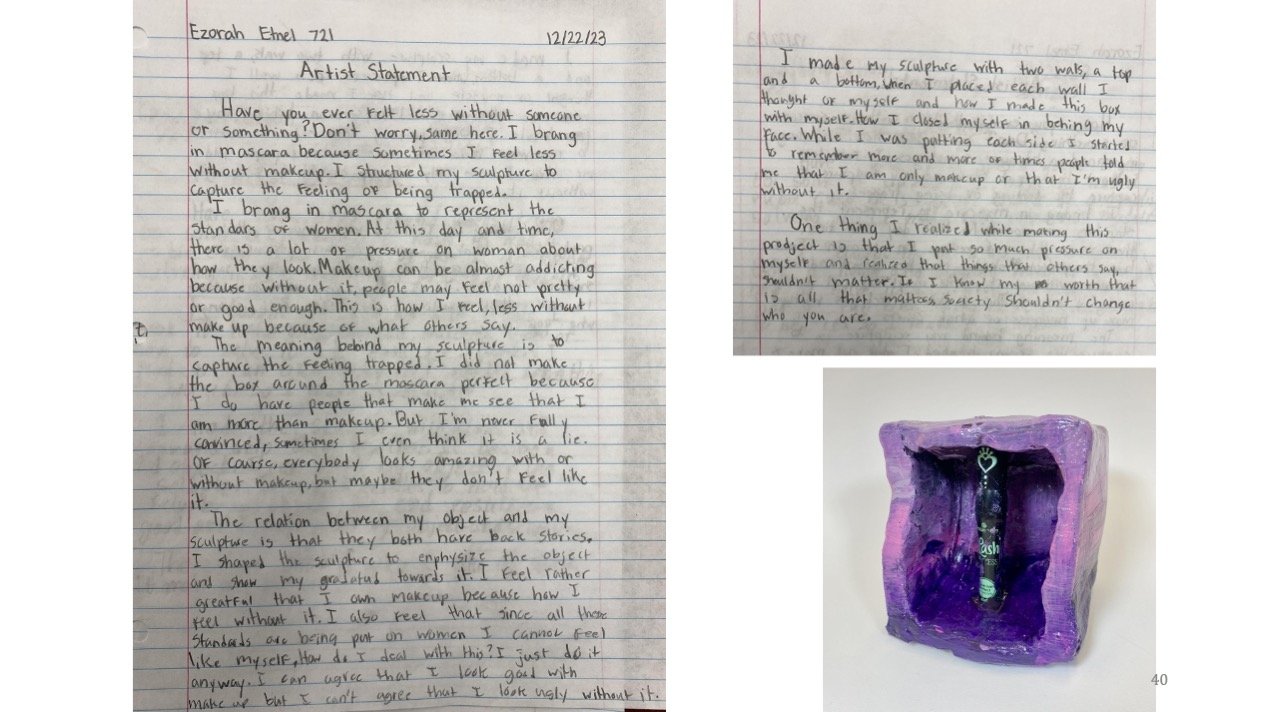 Ezorah Etnel 721
12/22/23
Artist Statement
Have you ever felt less without someone
or something? Don't worry, same here. I brang
in mascara because sometimes I feel less
without makeup. I structured my sculpture to
capture the feeling of being trapped.
I brang in mascara to represent the
standars of women. At this day and time,
there is a lot of pressure on woman about
how they look. Makeup can be almost addicting
because without it, people may feel not pretty
or good enough. This is how I feel, less without
make up because of what others say.
The meaning behind my sculpture is to
capture the feeling trapped. I did not make
the box around the mascara perfect because
I do have people that make me see that I
am more than makeup. But I'm never fully
convinced, sometimes I even think it is a lie.
Of course, everybody looks amazing with or
without makeup, but maybe they don't feel like
it.
The relation between my object and my
sculpture is that they both have back stories.
I shaped the sculpture to enphysize the object
and show my gradatud towards it. I feel rather
greatful that I own makeup because how I
feel without it. I also feel that since all these
standards are being put on women I cannot feel
like myself, How do I deal with this? I just do it
anyway. I can agree that I look good with
make up but I can't agree that I look ugly without it.
I made my sculpture with two wals, a top
and a bottom, when I placed each wall I
thought of myself and how I made this box
with myself. How I closed myself in behing my
face. While I was putting each side I started
to remember more and more of times people told
me that I am only makeup or that I'm ugly
without it.
One thing I realized while making this
prodject is that I put so much pressure on
myself and realized that things that others say,
shouldn't matter. If I know my worth that
is all that matters, society shouldn't change
who you are.
Lash
40